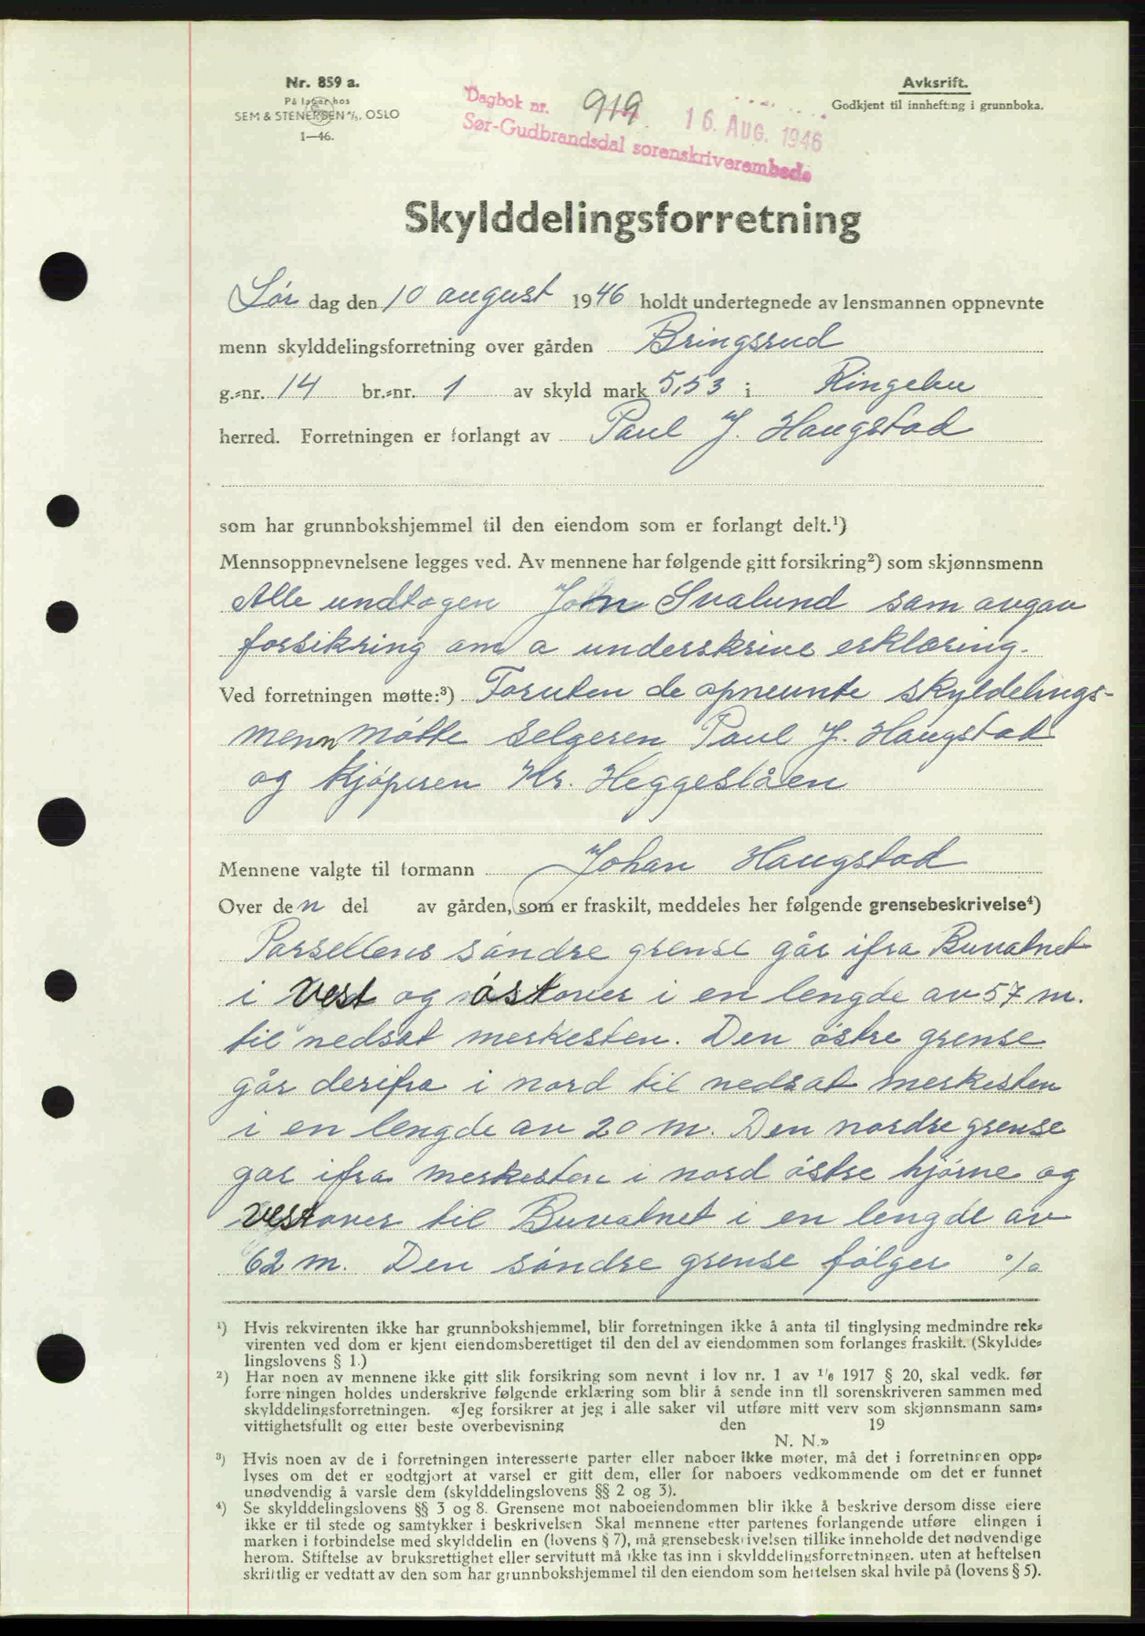 Nr. 859 a.
På lager hos
SEM & STENERSEN A/S, OSLO
1—46.
Avksrift.
Godkjent til innhefting i grunnboka.
Dagbok nr. 919 16. AUG. 1946
Sør-Gudbrandsdal sorenskriverembede
Skylddelingsforretning
Lør dag den 10 august 1946 holdt undertegnede av lensmannen oppnevnte
menn skylddelingsforretning over gården Bringsrud
g.=nr. 14 br.=nr. 1 av skyld mark 5,53 i Ringebu
herred. Forretningen er forlangt av Paul J. Haugstad
som har grunnbokshjemmel til den eiendom som er forlangt delt.¹)
Mennsoppnevnelsene legges ved. Av mennene har følgende gitt forsikring²) som skjønnsmenn
Alle undtagen John Svalund som avgav
forsikring om a underskrive erklæring.
Ved forretningen møtte:³) Foruten de opneunte skyldelings-
menn møtte selgeren Paul J. Haugstad
og kjøperen Kr. Heggeslåen
Mennene valgte til formann Johan Haugstad
Over den del av gården, som er fraskilt, meddeles her følgende grensebeskrivelse⁴)
Parsellens søndre grense går ifra Buvatnet
i Vest og østover i en lengde av 57 m.
til nedsat merkesten. Den østre grense
går derifra i nord til nedsat merkesten
i en lengde av 20 m. Den nordre grense
gar ifra merkesten i nord østre hjørne og
Vestover til Buvatnet i en lengde av
62 m. Den søndre grense følger %
¹) Hvis rekvirenten ikke har grunnbokshjemmel, blir forretningen ikke å anta til tinglysing medmindre rek=
virenten ved dom er kjent eiendomsberettiget til den del av eiendommen som forlanges fraskilt. (Skyldde=
lingslovens § 1.)
²) Har noen av mennene ikke gitt slik forsikring som nevnt i lov nr. 1 av 1/6 1917 § 20, skal vedk. før
forretningen holdes underskrive følgende erklæring som blir å sende inn til sorenskriveren sammen med
skylddelingsforretningen. «Jeg forsikrer at jeg i alle saker vil utføre mitt verv som skjønnsmann sam=
vittighetsfullt og etter beste overbevisning den 19
N. N.»
³) Hvis noen av de i forretningen interesserte parter eller naboer ikke møter, må det i forretningen opp=
lyses om det er godtgjort at varsel er gitt dem, eller for naboers vedkommende om det er funnet
unødvendig å varsle dem (skylddelingslovens §§ 2 og 3).
⁴) Se skylddelingslovens §§ 3 og 8. Grensene mot naboeiendommen blir ikke å beskrive dersom disse eiere
ikke er til stede og samtykker i beskrivelsen Skal mennene etter partenes forlangende utføre elingen i
marken i forbindelse med skylddelin en (lovens § 7), må grensebeskrivelsen tillike inneholde det nødvendige
herom. Stiftelse av bruksrettighet eller servitutt må ikke tas inn i skylddelingsforretningen. uten at heftelsen
skriftlig er vedtatt av den som har grunnbokshjemmel til den eiendom som heftelsen skal hvile på (lovens § 5).